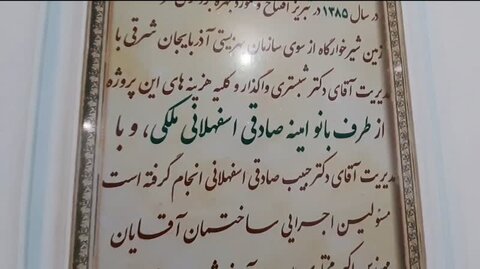 در سال ۱۳۸۵ در تبریز افتتاح و مورد بهره
زمین شیرخوارگاه از سوی سازمان بهزیستی آذربایجان شرقی با
مدیریت آقای دکتر شبستری واگذار و کلیه هزینه های این پروژه
از طرف بانو امینه صادقی اسفهلانی ملکی، و با
مدیریت آقای دکتر حبیب صادقی اسفهلانی انجام گرفته است
مسئولین اجرایی ساختمان آقایان